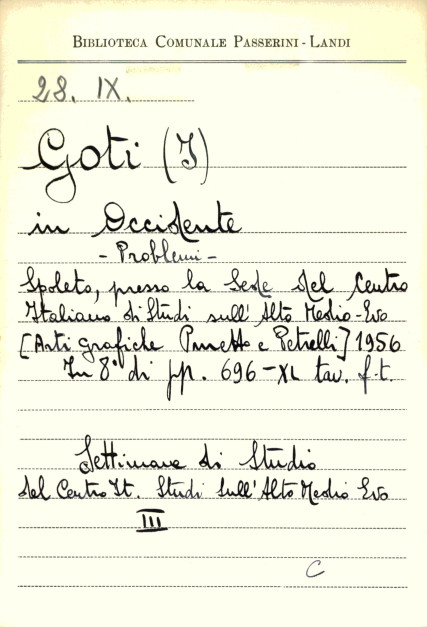 BIBLIOTECA COMUNALE PASSERINI - LANDI
28. IX.
Goti (I)
in Occidente
- Problemi -
Spoleto, presso la Sede del Centro
Italiano di Studi sull'Alto Medio-Evo
[Arti grafiche Panetto e Petrelli] 1956
In 8° di pp. 696-XL tav. f.t.
Settimane di Studio
del Centro It. Studi Sull'Alto Medio Evo
III
C